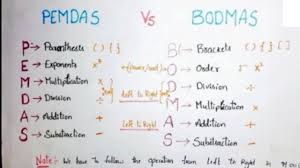 PEMDAS Vs BODMAS
P → Parenthesis ( ) { } B → Brackets ( ) { } [ ]
E → Exponents x² O → Order x²
M → Multiplication x D → Division ÷
D → Division ÷ Left to Right M → Multiplication x
A → Addition + Left to Right A → Addition +
S → Subtraction - S → Subtraction -
Note: We have to follow the operation from Left to Right